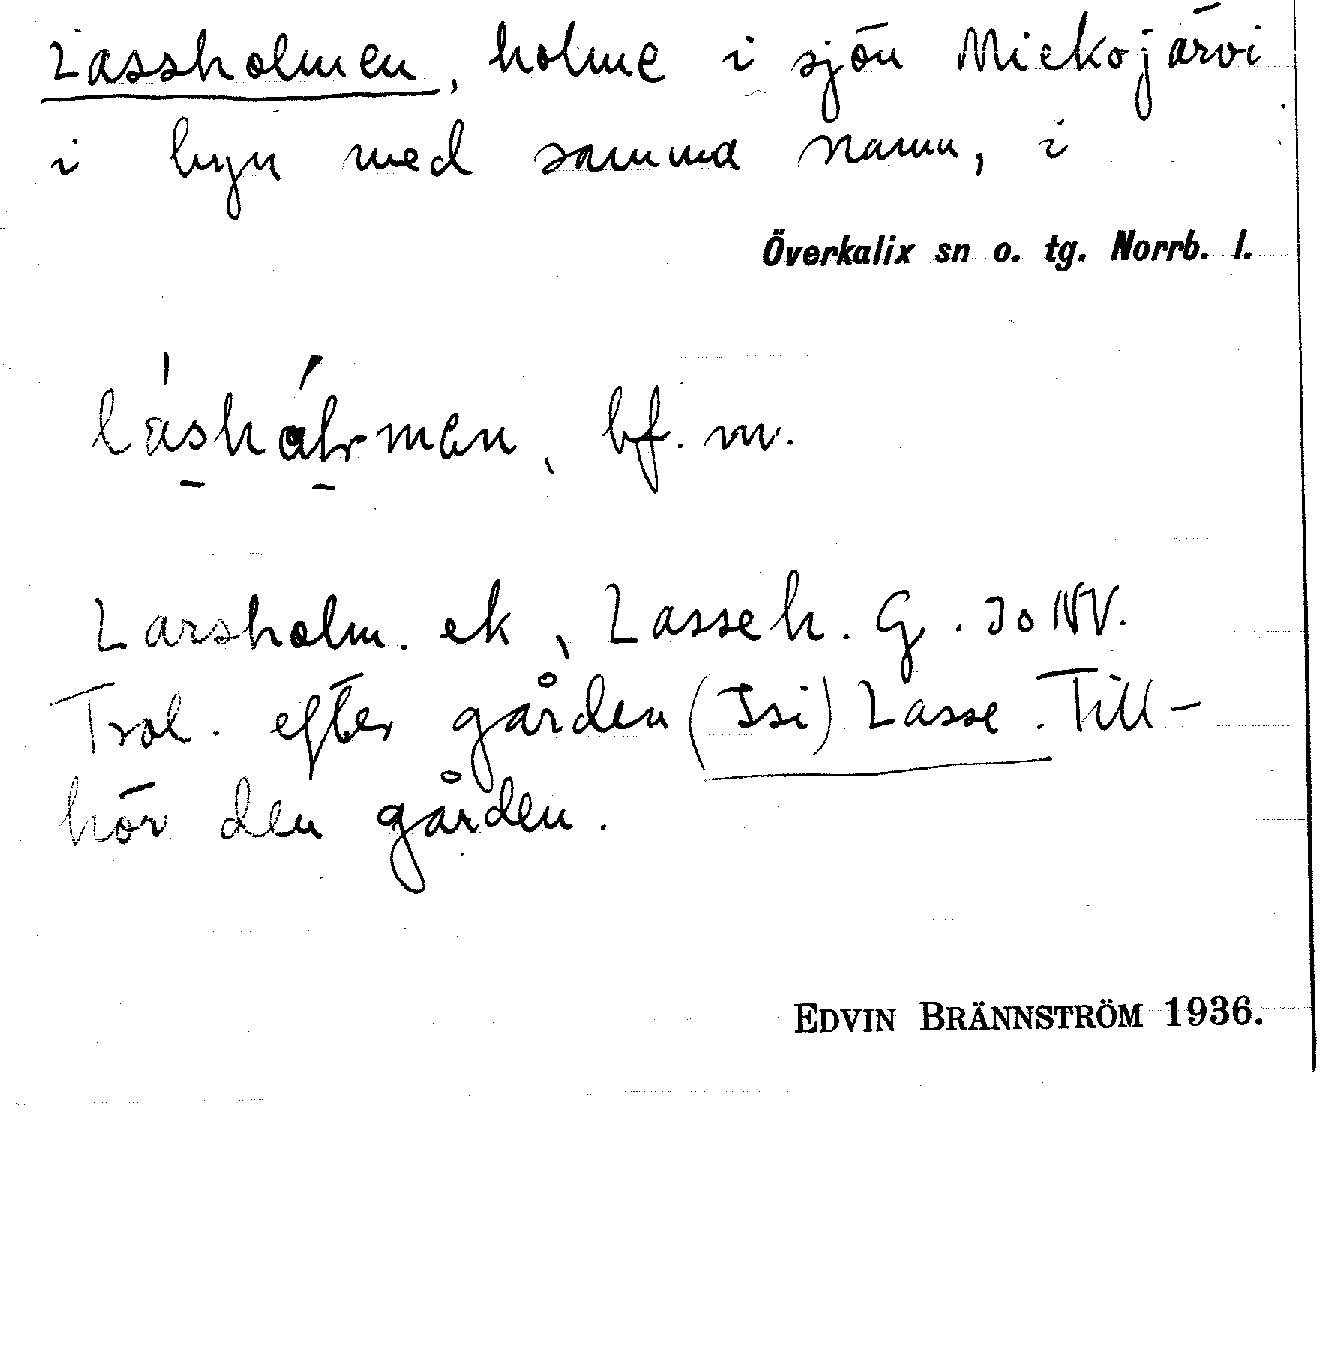 Lassholmen, holme i sjön Miekojärvi
i byn med samma namn, i
Överkalix sn o. tg. Norrb. l.
bf. m.
Larsholm. ek, Lasseh. G. 30 NV.
Trol. efter gården (Isi) Lasse. Till-
hör den gården.
EDVIN BRÄNNSTRÖM 1936.